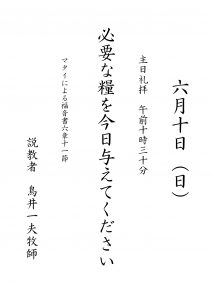 六月十日（日）
主日礼拝　午前十時三十分
必要な糧を今日与えてください
マタイによる福音書六章十一節
説教者　鳥井一夫牧師